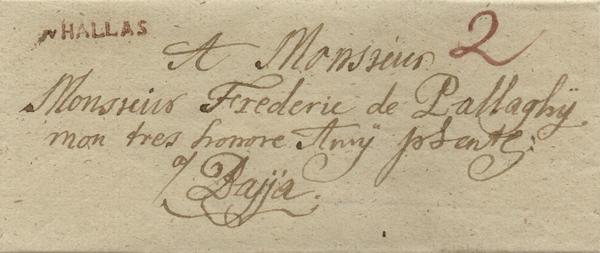 v HALLAS
2
A Monsieur
Monsieur Frederic de Pallaghÿ
mon tres honore Amÿ
Bajja.